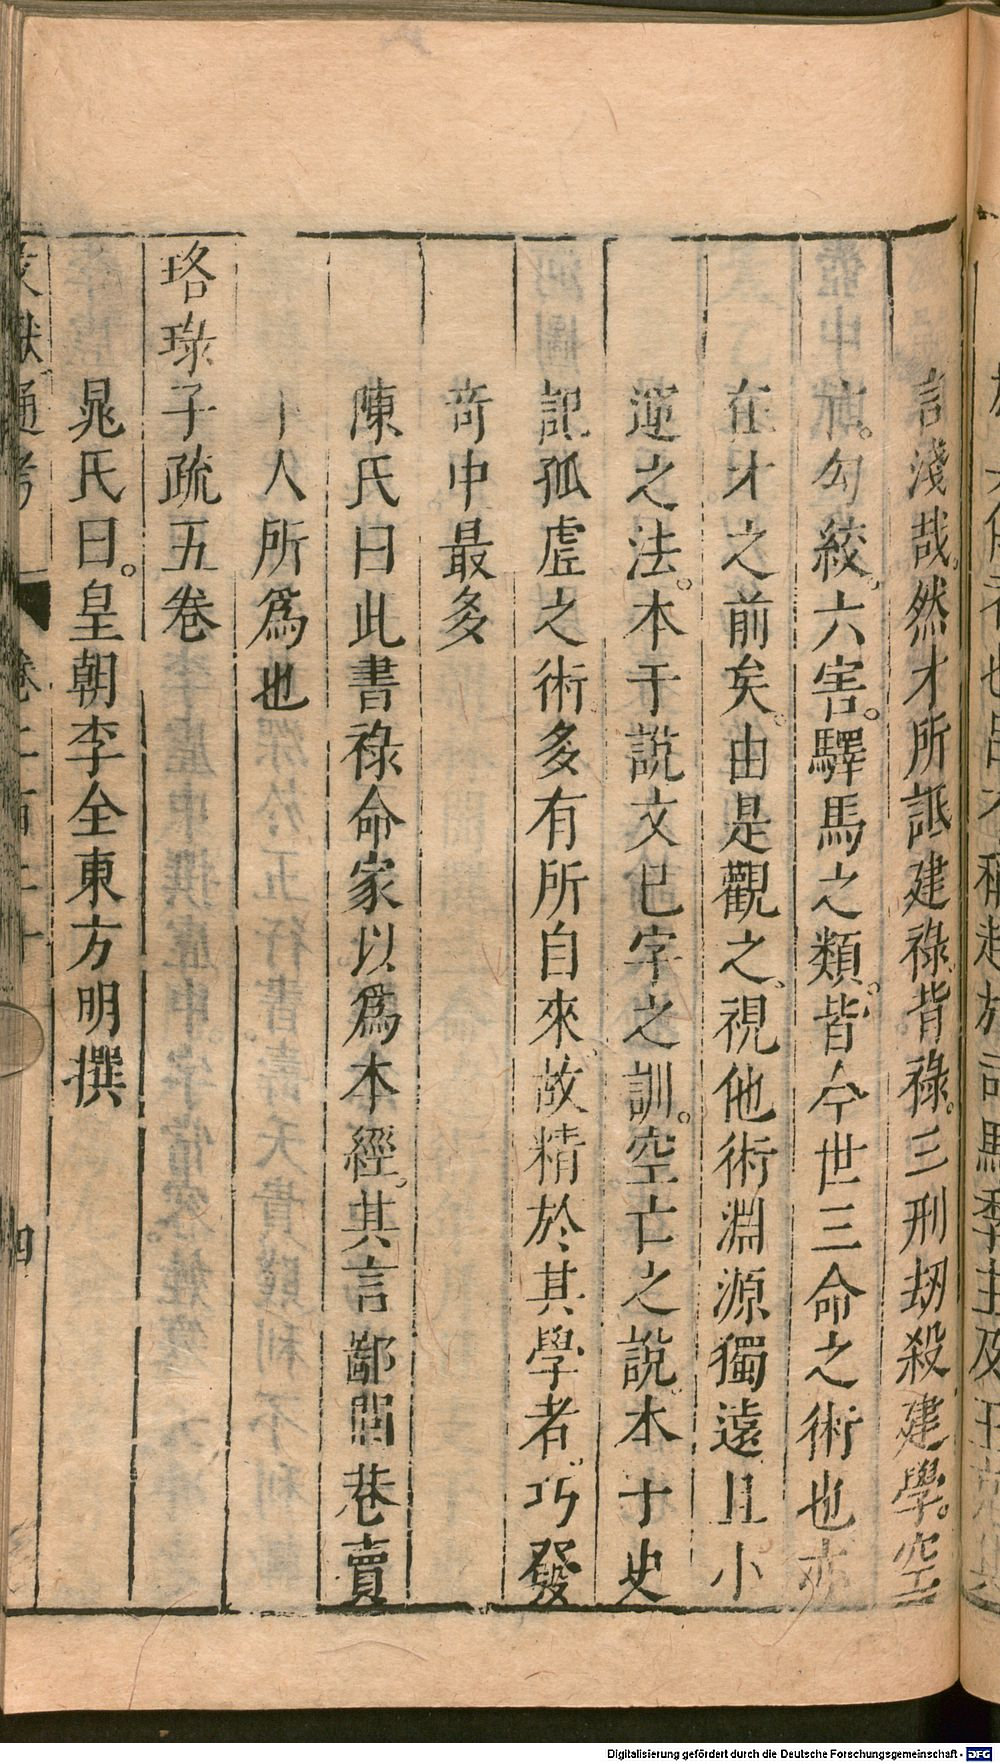 言淺哉。然才所詆建祿、背祿。三刑劫殺建學。空
亡。勾絞、六害。驛馬之類。皆今世三命之術也亦
在才之前矣。由是觀之、視他術淵源獨遠且小
運之法。本于說文巳字之訓。空亡之說。本于史
記孤虛之術。多有所自來。故精於其學者、巧發
奇中最多
陳氏曰此書祿命家以爲本經。其言鄙閭巷賣
卜人所爲也
珞琭子疏五卷
晁氏曰。皇朝李全東方明撰
文獻通考 卷二百二十 四
Digitalisierung gefördert durch die Deutsche Forschungsgemeinschaft - DFG